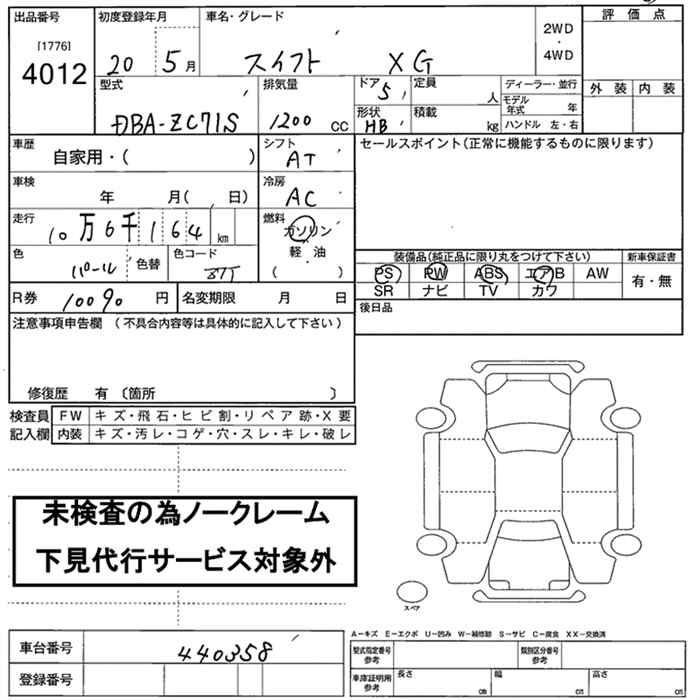 出品番号 初度登録年月 車名・グレード 2WD ・ 4WD 評価点
[1776] 4012 20 5月 スイフト XG
型式 排気量 ドア 5 定員 人 ディーラー・並行 外装 内装
DBA-ZC71S 1200 CC 形状 HB 積載 kg モデル年式 年 ハンドル 左・右
車歴 自家用・( ) シフト AT セールスポイント(正常に機能するものに限ります)
車検 年 月( 日) 冷房 AC
走行 10万6千164 km 燃料 ガソリン 軽油 ( )
色 パール 色替 色コード 装備品(純正品に限り丸をつけて下さい) 新車保証書
PS PW ABS エアB AW 有・無
SR ナビ TV カワ
R券 10090 円 名変期限 月 日 後日品
注意事項申告欄 (不具合内容等は具体的に記入して下さい)
修復歴 有 〔箇所 〕
検査員 FW キズ・飛石・ヒビ割・リペア跡・X要
記入欄 内装 キズ・汚レ・コゲ・穴・スレ・キレ・破レ
未検査の為ノークレーム
下見代行サービス対象外
スペア
A−キズ E−エクボ U−凹み W−補修跡 S−サビ C−腐食 XX−交換済
車台番号 440358 型式指定番号 参考 類別区分番号 参考
登録番号 車庫証明用 参考 長さ cm 幅 cm 高さ cm